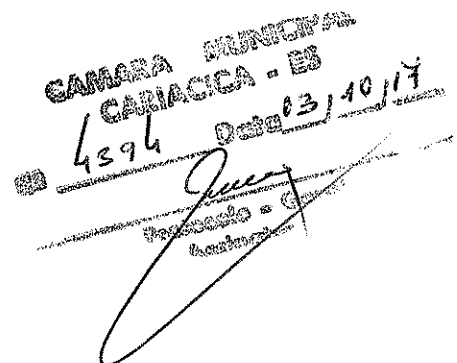 CAMARA MUNICIPAL
CARIACICA - ES
4394 Data 03/10/17
Protocolo - Geral